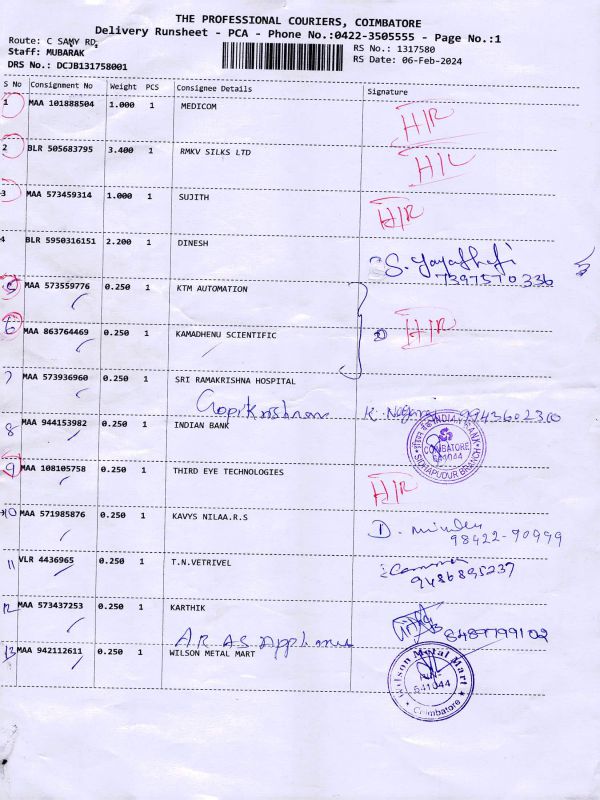 THE PROFESSIONAL COURIERS, COIMBATORE
Delivery Runsheet - PCA - Phone No.:0422-3505555 - Page No.:1
Route: C SAMY RD,
Staff: MUBARAK
RS No.: 1317580
DRS No.: DCJB131758001
RS Date: 06-Feb-2024
S No Consignment No Weight PCS Consignee Details Signature
1 MAA 101888504 1.000 1 MEDICOM H/R
2 BLR 505683795 3.400 1 RMKV SILKS LTD
3 MAA 573459314 1.000 1 SUJITH H/R
4 BLR 5950316151 2.200 1 DINESH
7397570336
5 MAA 573559776 0.250 1 KTM AUTOMATION
6 MAA 863764469 0.250 1 KAMADHENU SCIENTIFIC H/R
7 MAA 573936960 0.250 1 SRI RAMAKRISHNA HOSPITAL
Gopikrishnan
8 MAA 944153982 0.250 1 INDIAN BANK
INDIAN BANK
COIMBATORE
641044
SIDHAPUDUR BRANCH
9 MAA 108105758 0.250 1 THIRD EYE TECHNOLOGIES H/R
10 MAA 571985876 0.250 1 KAVYS NILAA.R.S
98422-90999
11 VLR 4436965 0.250 1 T.N.VETRIVEL
9486895237
12 MAA 573437253 0.250 1 KARTHIK
8487799102
13 MAA 942112611 0.250 1 WILSON METAL MART
Wilson Metal Mart
641044
Coimbatore